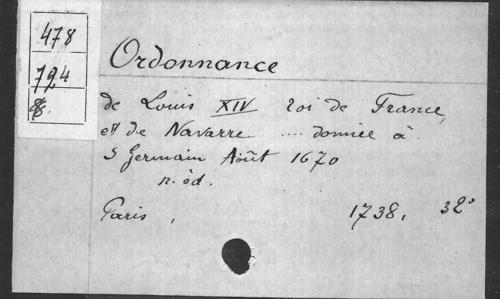 478
724
8.
Ordonnance
de Louis XIV roi de France
et de Navarre .... donnée à
S Germain Août 1670
n. éd.
Paris, 1738, 32°